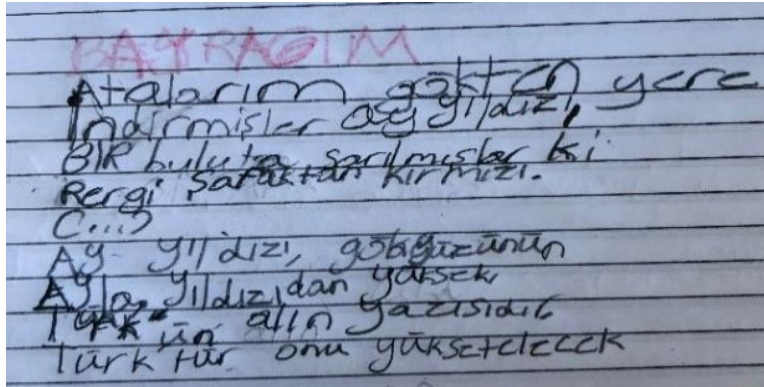 BAYRAĞIM
Atalarım gökten yere
İndirmişler ay yıldızı,
BİR buluta sarılmışlar ki
Rergi Şafaktan kırmızı.
(...)
Ay yıldızı, gökyüzünün
Ayla, yıldızıdan yüksek
Türk'ün alın yazısıdır
Türk tür onu yükseltelecek